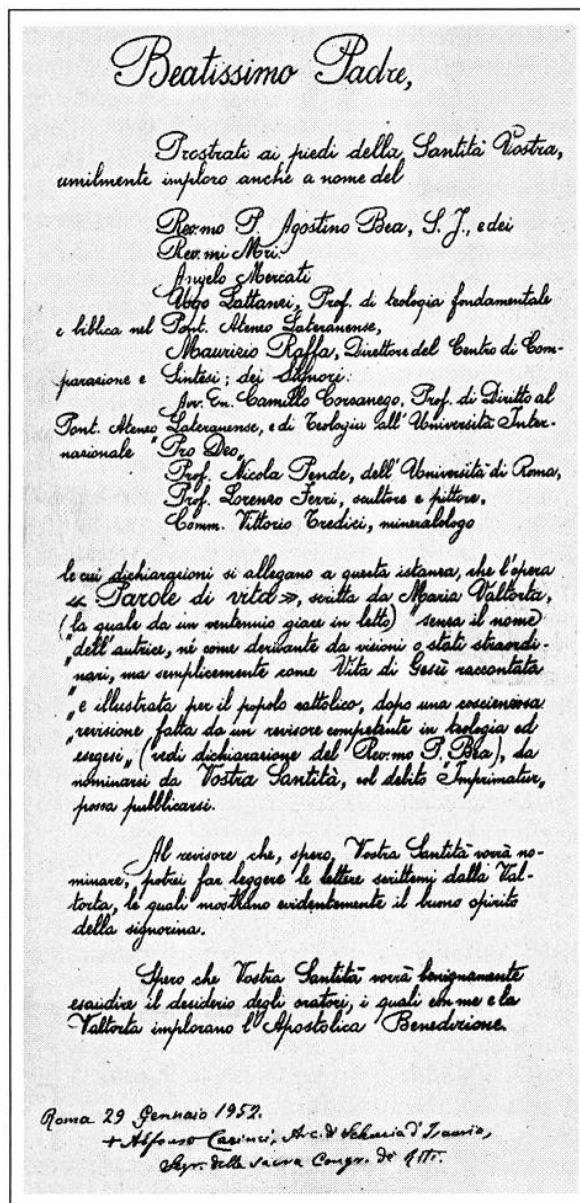 Beatissimo Padre,
Prostrati ai piedi della Santità Vostra,
umilmente imploro anche a nome del
Rev.mo P. Agostino Bea, S. J., e dei
Rev.mi Mri.
Angelo Mercati
Ugo Lattanzi, Prof. di teologia fondamentale
e biblica nel Pont. Ateneo Lateranense,
Maurizio Raffa, Direttore del Centro di Com-
parazione e Sintesi; dei Signori:
Avv. En. Camillo Corsanego, Prof. di Diritto al
Pont. Ateneo Lateranense, e di Teologia all'Università Inter-
nazionale "Pro Deo„
Prof. Nicola Pende, dell'Università di Roma,
Prof. Lorenzo Ferri, scultore e pittore,
Comm. Vittorio Tredici, mineralogo
le cui dichiarazioni si allegano a questa istanza, che l'opera
« Parole di vita », scritta da Maria Valtorta,
(la quale da un ventennio giace in letto) "senza il nome
"dell'autrice, né come derivante da visioni o stati straordi-
"nari, ma semplicemente come Vita di Gesù raccontata
"e illustrata per il popolo cattolico, dopo una coscienzosa
"revisione fatta da un revisore competente in teologia ed
"esegesi„ (vedi dichiarazione del Rev.mo P. Bea), da
nominarsi da Vostra Santità, col debito "Imprimatur„
possa pubblicarsi.
Al revisore che, spero, Vostra Santità vorrà no-
minare, potrei far leggere le lettere scrittemi dalla Val-
torta, le quali mostrano evidentemente il buono spirito
della signorina.
Spero che Vostra Santità vorrà benignamente
esaudire il desiderio degli oratori, i quali con me e la
Valtorta implorano l'Apostolica Benedizione.
Roma 29 Gennaio 1952.
+ Alfonso Carinci, Arc. di Seleucia d'Isauria,
Segr. della Sacra Congr. de' Riti.